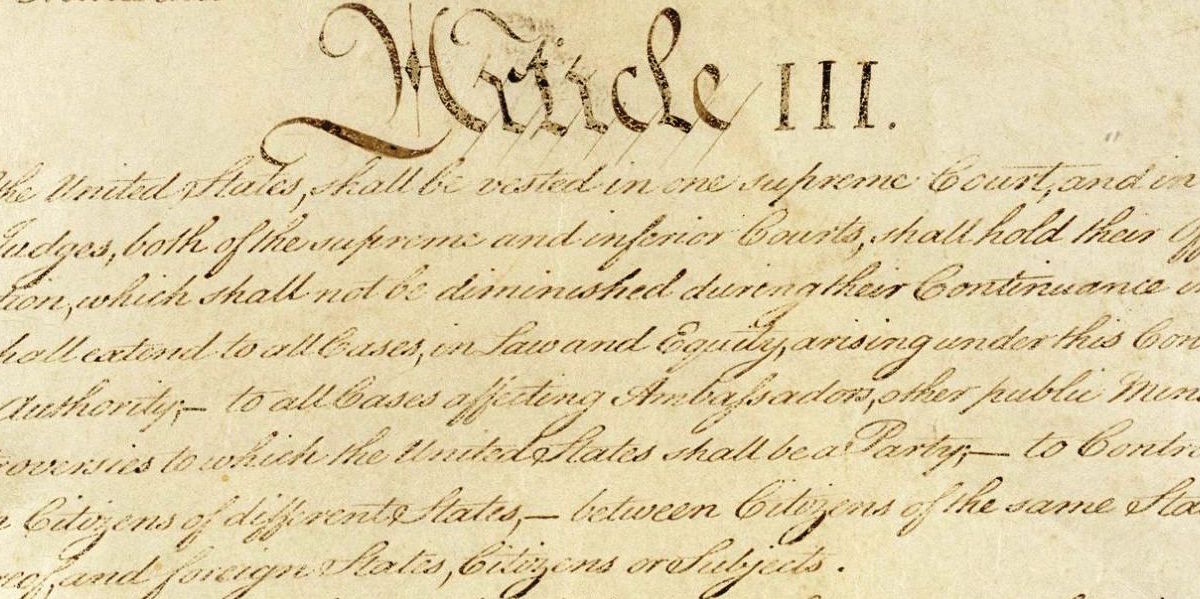 Article III.
the United States, shall be vested in one supreme Court, and in
Judges, both of the supreme and inferior Courts, shall hold their
tion, which shall not be diminished during their Continuance
hall extend to all Cases, in Law and Equity, arising under this Con
Authority;— to all Cases affecting Ambassadors, other public Min
roversies to which the United States shall be a Party;— to Contro
n Citizens of different States,— between Citizens of the same Sta
reof, and foreign States, Citizens or Subjects.